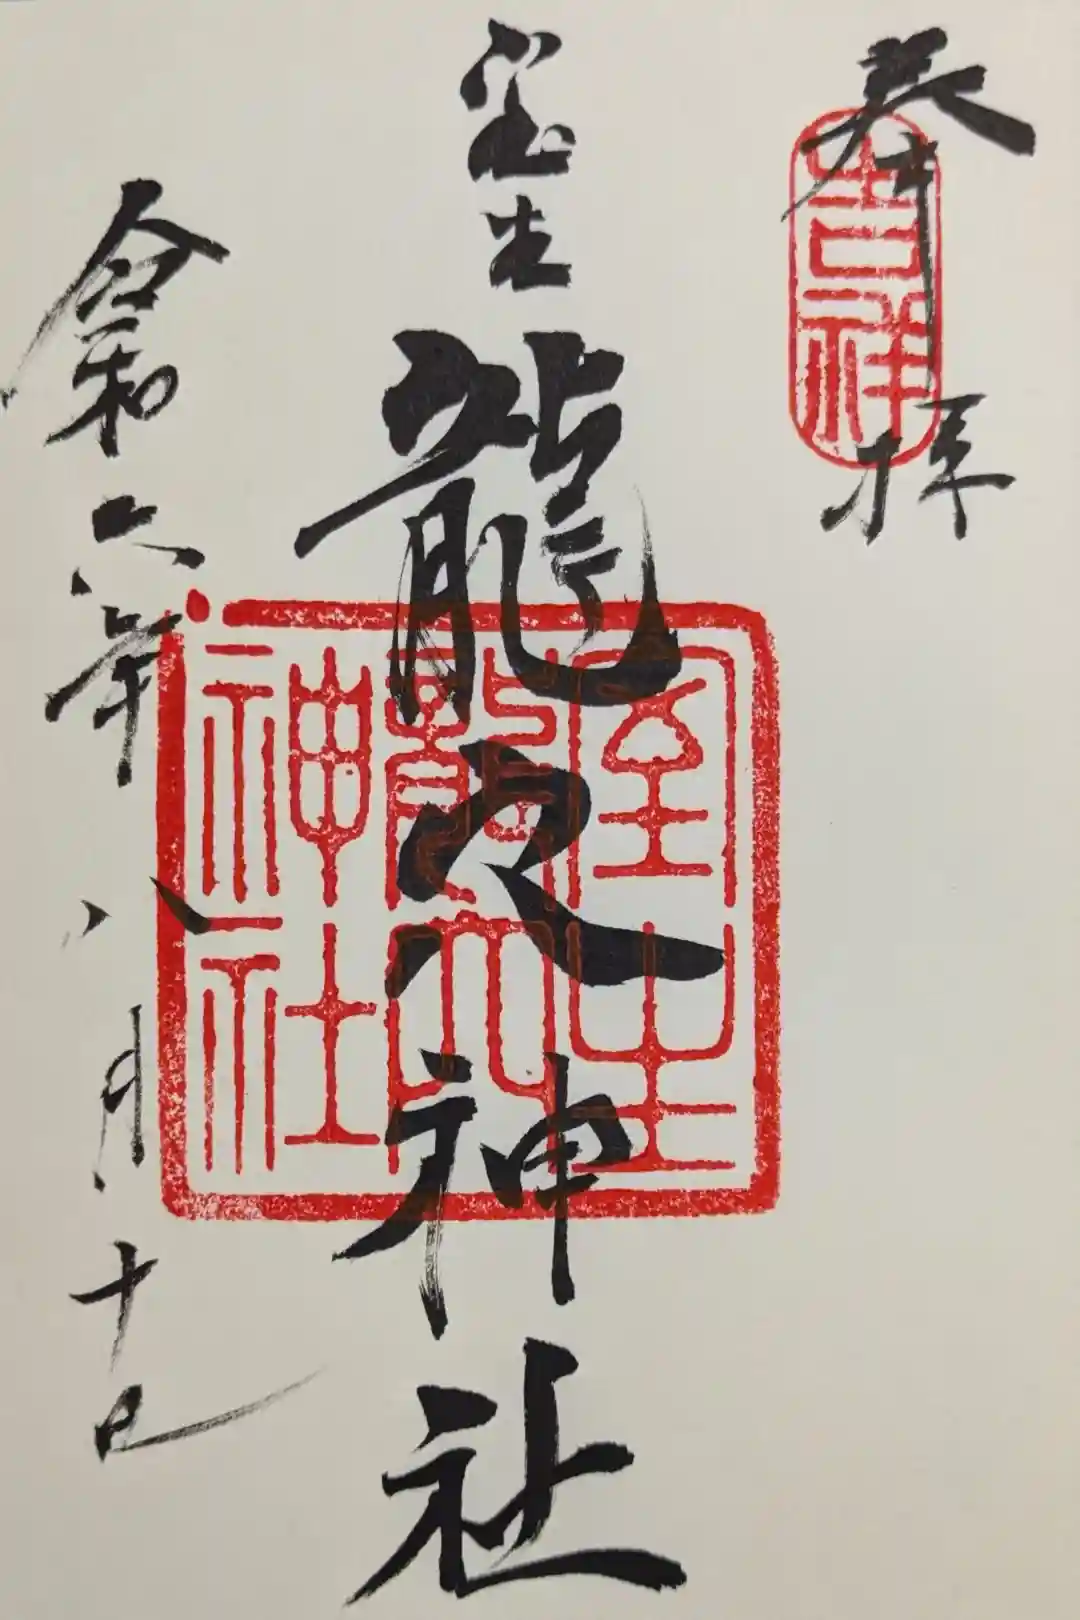 奉拝
吉祥
室生
龍穴神社
室生
龍穴
神社
令和六年八月十日